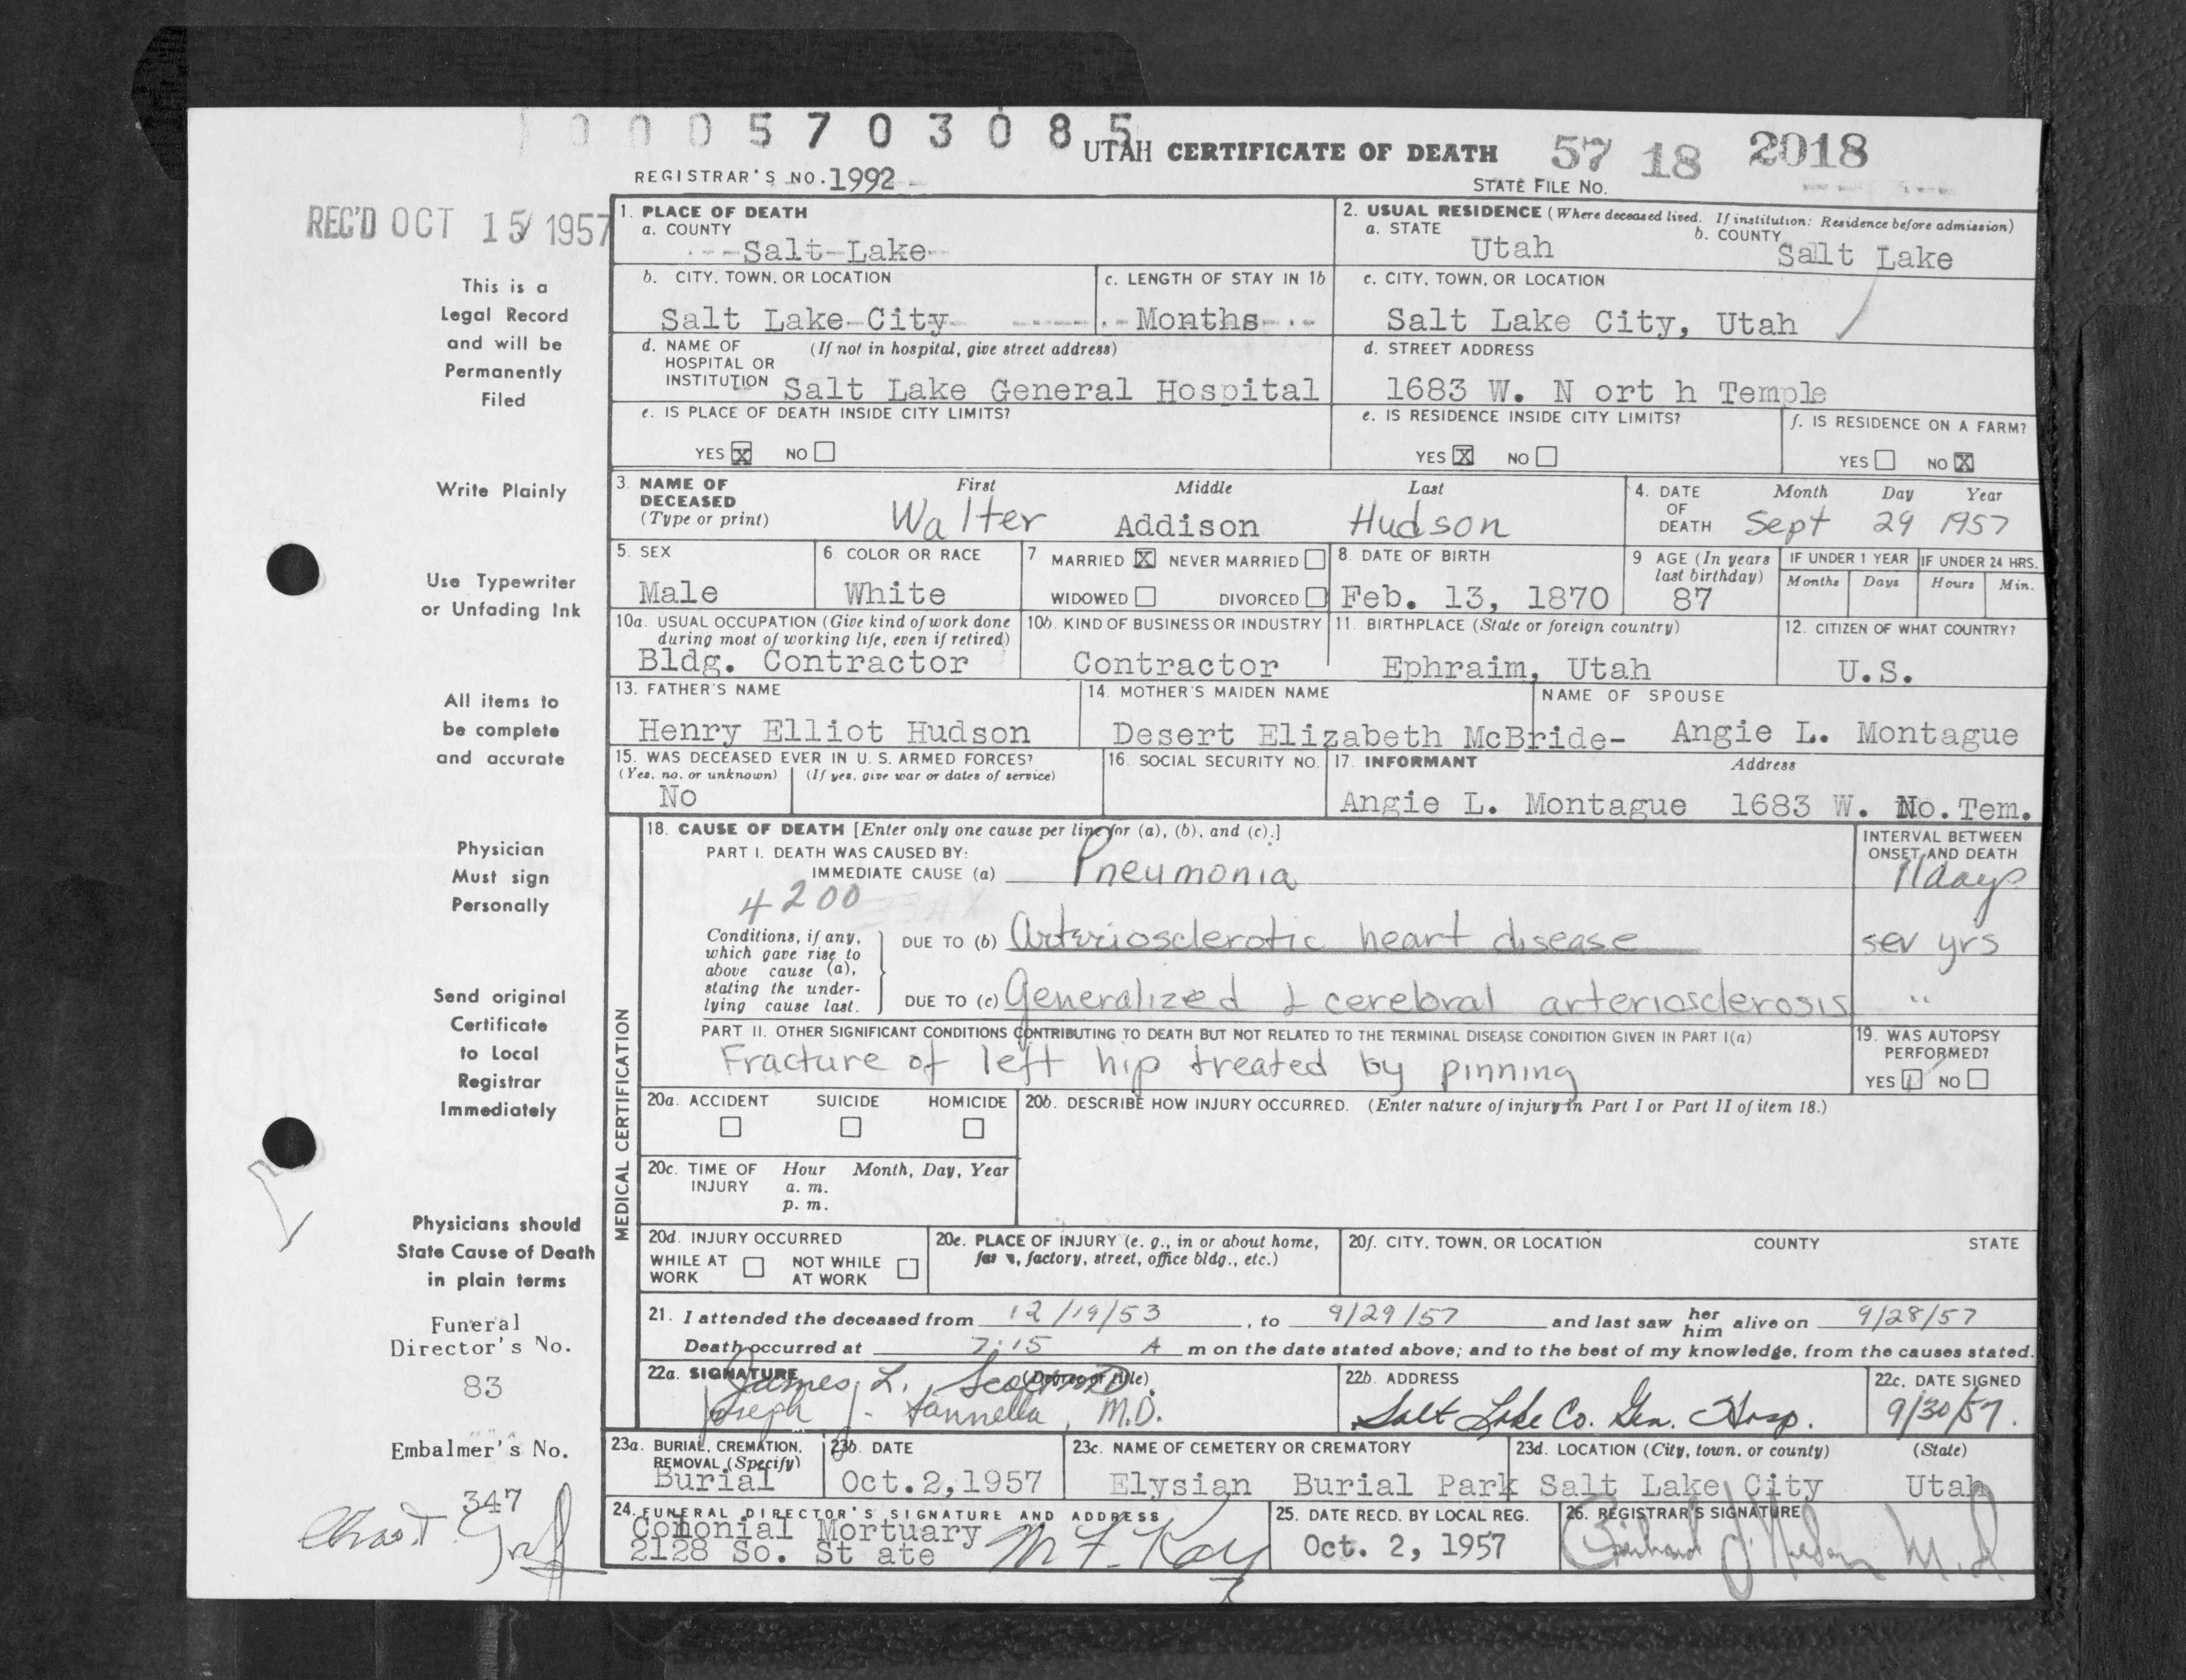 0 0 0 5 7 0 3 0 8 5
UTAH CERTIFICATE OF DEATH 57 18 2018
REGISTRAR'S NO. 1992 STATE FILE NO.
REC'D OCT 15 1957
This is a
Legal Record
and will be
Permanently
Filed
Write Plainly
Use Typewriter
or Unfading Ink
All items to
be complete
and accurate
Physician
Must sign
Personally
Send original
Certificate
to Local
Registrar
Immediately
Physicians should
State Cause of Death
in plain terms
Funeral
Director's No.
83
Embalmer's No.
347
1. PLACE OF DEATH
a. COUNTY
Salt Lake
2. USUAL RESIDENCE (Where deceased lived. If institution: Residence before admission)
a. STATE b. COUNTY
Utah Salt Lake
b. CITY, TOWN, OR LOCATION c. LENGTH OF STAY IN 1b c. CITY, TOWN, OR LOCATION
Salt Lake City Months Salt Lake City, Utah
d. NAME OF (If not in hospital, give street address) d. STREET ADDRESS
HOSPITAL OR
INSTITUTION Salt Lake General Hospital 1683 W. N ort h Temple
e. IS PLACE OF DEATH INSIDE CITY LIMITS? e. IS RESIDENCE INSIDE CITY LIMITS? f. IS RESIDENCE ON A FARM?
YES X NO YES X NO YES NO X
3. NAME OF First Middle Last 4. DATE Month Day Year
DECEASED OF
(Type or print) Walter Addison Hudson DEATH Sept 29 1957
5. SEX 6. COLOR OR RACE 7 MARRIED X NEVER MARRIED 8. DATE OF BIRTH 9 AGE (In years IF UNDER 1 YEAR IF UNDER 24 HRS.
last birthday) Months Days Hours Min.
Male White WIDOWED DIVORCED Feb. 13, 1870 87
10a. USUAL OCCUPATION (Give kind of work done 10b. KIND OF BUSINESS OR INDUSTRY 11. BIRTHPLACE (State or foreign country) 12. CITIZEN OF WHAT COUNTRY?
during most of working life, even if retired)
Bldg. Contractor Contractor Ephraim, Utah U.S.
13. FATHER'S NAME 14. MOTHER'S MAIDEN NAME NAME OF SPOUSE
Henry Elliot Hudson Desert Elizabeth McBride- Angie L. Montague
15. WAS DECEASED EVER IN U. S. ARMED FORCES? 16. SOCIAL SECURITY NO. 17. INFORMANT Address
(Yes, no, or unknown) (If yes, give war or dates of service)
No Angie L. Montague 1683 W. No. Tem.
MEDICAL CERTIFICATION
18. CAUSE OF DEATH [Enter only one cause per line for (a), (b), and (c).] INTERVAL BETWEEN
PART I. DEATH WAS CAUSED BY: ONSET AND DEATH
IMMEDIATE CAUSE (a) Pneumonia 11 days
4200
Conditions, if any,
which gave rise to
above cause (a),
stating the under-
lying cause last.
DUE TO (b) Arteriosclerotic heart disease sev yrs
DUE TO (c) Generalized & cerebral arteriosclerosis "
PART II. OTHER SIGNIFICANT CONDITIONS CONTRIBUTING TO DEATH BUT NOT RELATED TO THE TERMINAL DISEASE CONDITION GIVEN IN PART I(a) 19. WAS AUTOPSY
PERFORMED?
Fracture of left hip treated by pinning YES NO
20a. ACCIDENT SUICIDE HOMICIDE 20b. DESCRIBE HOW INJURY OCCURRED. (Enter nature of injury in Part I or Part II of item 18.)
20c. TIME OF Hour Month, Day, Year
INJURY a. m.
p. m.
20d. INJURY OCCURRED 20e. PLACE OF INJURY (e. g., in or about home, 20f. CITY, TOWN, OR LOCATION COUNTY STATE
WHILE AT NOT WHILE factory, street, office bldg., etc.)
WORK AT WORK
21. I attended the deceased from 12/19/53, to 9/29/57 and last saw her him alive on 9/28/57
Death occurred at 7:15 A m on the date stated above; and to the best of my knowledge, from the causes stated.
22a. SIGNATURE (Degree or title) 22b. ADDRESS 22c. DATE SIGNED
James L.
Joseph J. Iannella, M.D. Salt Lake Co. Gen. Hosp. 9/30/57.
23a. BURIAL, CREMATION, 23b. DATE 23c. NAME OF CEMETERY OR CREMATORY 23d. LOCATION (City, town, or county) (State)
REMOVAL (Specify)
Burial Oct.2,1957 Elysian Burial Park Salt Lake City Utah
24. FUNERAL DIRECTOR'S SIGNATURE AND ADDRESS 25. DATE RECD. BY LOCAL REG. 26. REGISTRAR'S SIGNATURE
Colonial Mortuary
2128 So. St ate M F. Kay Oct. 2, 1957